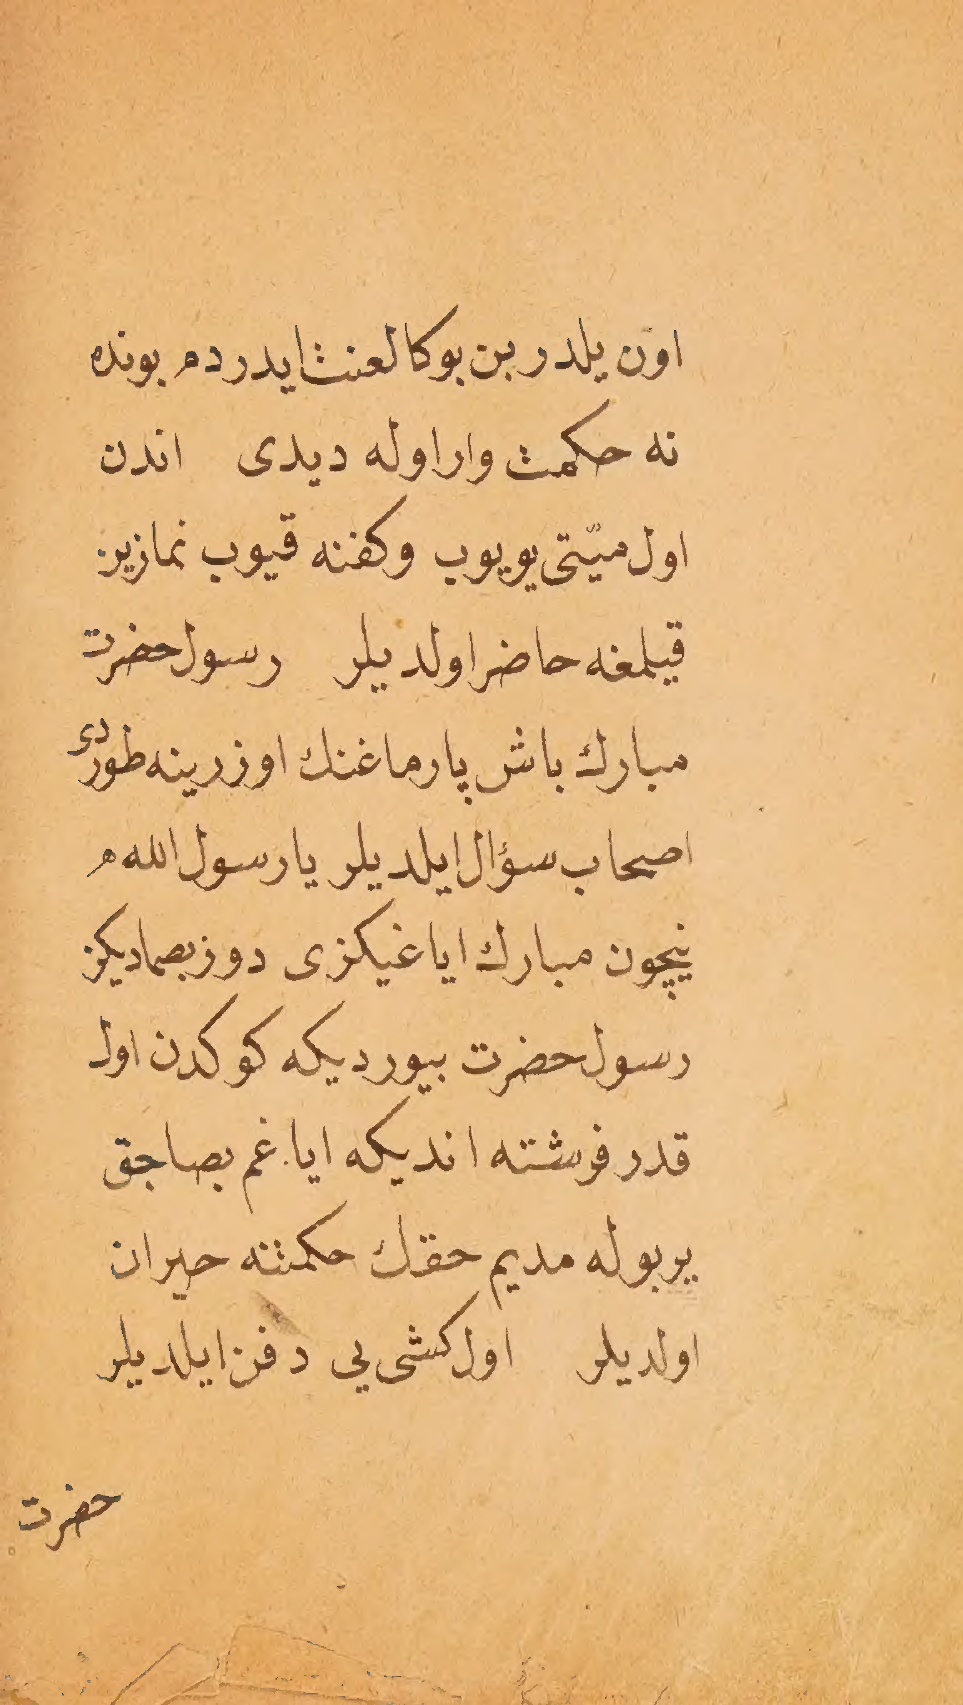 اون يلدر بن بوكا لعنت ايدردم بونده
نه حكمت وار اوله ديدى اندن
اول ميّتى يويوب وكفنه قيوب نمازين
قيلمغه حاضر اولديلر رسول حضرت
مبارك باش پارماغنك اوزرينه طوردى
اصحاب سؤال ايلديلر يا رسول الله م
نيچون مبارك اياغيكزى دوز بصماديكز
رسول حضرت بيورديكه كوكدن اول
قدر فرشته انديكه اياغم بصاجق
ير بوله مديم حقك حكمتنه حيران
اولديلر اول كشى يى دفن ايلديلر
حضرت